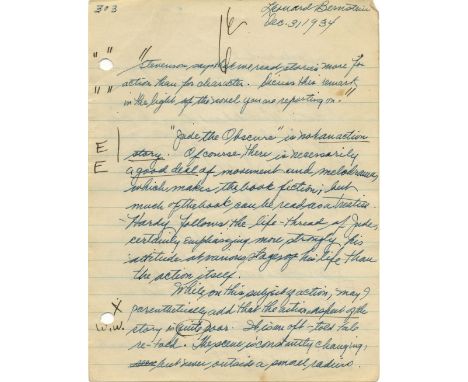 303
Leonard Bernstein
Dec. 3, 1934
" "
" "
"Stevenson says that we read stories more for
action than for character. Discuss this remark
in the light of the novel you are reporting on."
E
E
"Jude, the Obscure" is not an action
story. Of course, there is necessarily
a good deal of movement and melodrama,
which makes the book fiction; but
much of the book can be read as a treatise
Hardy follows the life-thread of Jude,
certainly emphasizing more strongly his
attitude at various stages of his life than
the action itself.
While on this subject of action, may I
X
parenthetically add that the action aspect of the
W.W.
story is quite poor. It is an oft-told tale
re-told. The scene is constantly changing,
but never outside a small radius.